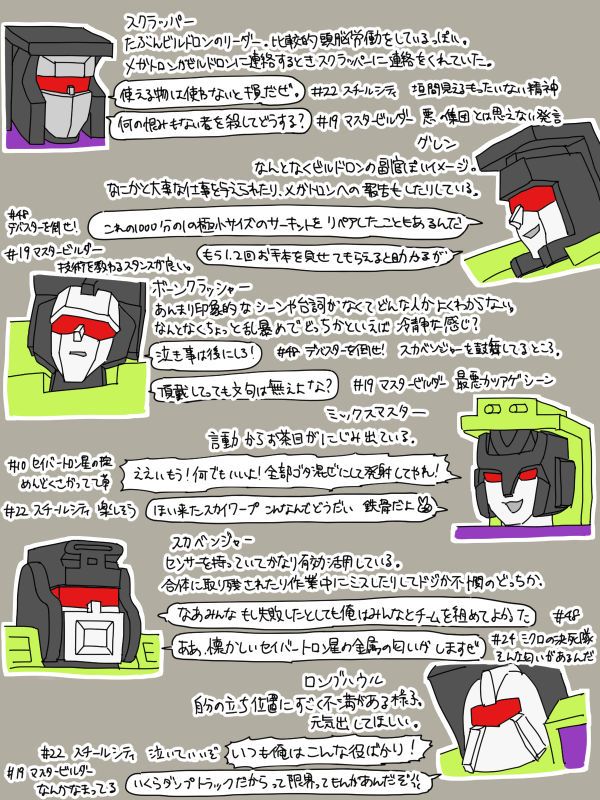 スクラッパー
たぶんビルドロンのリーダー。比較的頭脳労働をしているっぽい。
メガトロンがビルドロンに連絡するときスクラッパーに連絡をくれていた。
使える物は使わないと損だぜ。 #22 スチールシティ 垣間見えるもったいない精神
何の恨みもない者を殺してどうする? #19 マスタービルダー 悪の集団とは思えない発言
グレン
なんとなくビルドロンの副官ぽいイメージ。
なにかと大事な仕事を与えられたり、メガトロンへの報告もしたりしている。
#48
デバスターを倒せ!
これの1000分の1の極小サイズのサーキットをリペアしたこともあるんだ
#19 マスタービルダー
技術を教わるスタンスが良い。
もう1、2回お手本を見せてもらえると助かるが
ボーンクラッシャー
あんまり印象的なシーンや台詞がなくてどんな人かよくわからない。
なんとなくちょっと乱暴めでどっちかといえば冷静な感じ?
泣き事は後にしろ! #48 デバスターを倒せ! スカベンジャーを鼓舞してるところ。
頂戴しちっても文句は無えよなあ? #19 マスタービルダー 最悪カツアゲシーン
ミックスマスター
言動からお茶目がにじみ出ている。
#10 セイバートロン星の
めんどくさがってて草
ええいもう!何でもいいよ!全部ゴタ混ぜにして発射してやれ!
#22 スチールシティ 楽しそう
ほい来たスカイワープ こんなんでどうだい 鉄骨だよ
スカベンジャー
センサーを持っていてかなり有効活用している。
合体に取り残されたり作業中にミスしたりしてドジか不憫のどっちか。
なあみんな もし失敗したとしても俺はみんなとチームを組めてよかった #48
ああ、懐かしいセイバートロン星の金属の匂いがしますぜ
#24 ミクロの決死隊
そんな匂いがあるんだ
ロングハウル
自分の立ち位置にすごく不満がある様子。
元気出してほしい。
#22 スチールシティ 泣いていいぞ いつも俺はこんな役ばかり!
#19 マスタービルダー
なんかなまってる
いくらダンプトラックだからって限界ってもんがあんだぞう